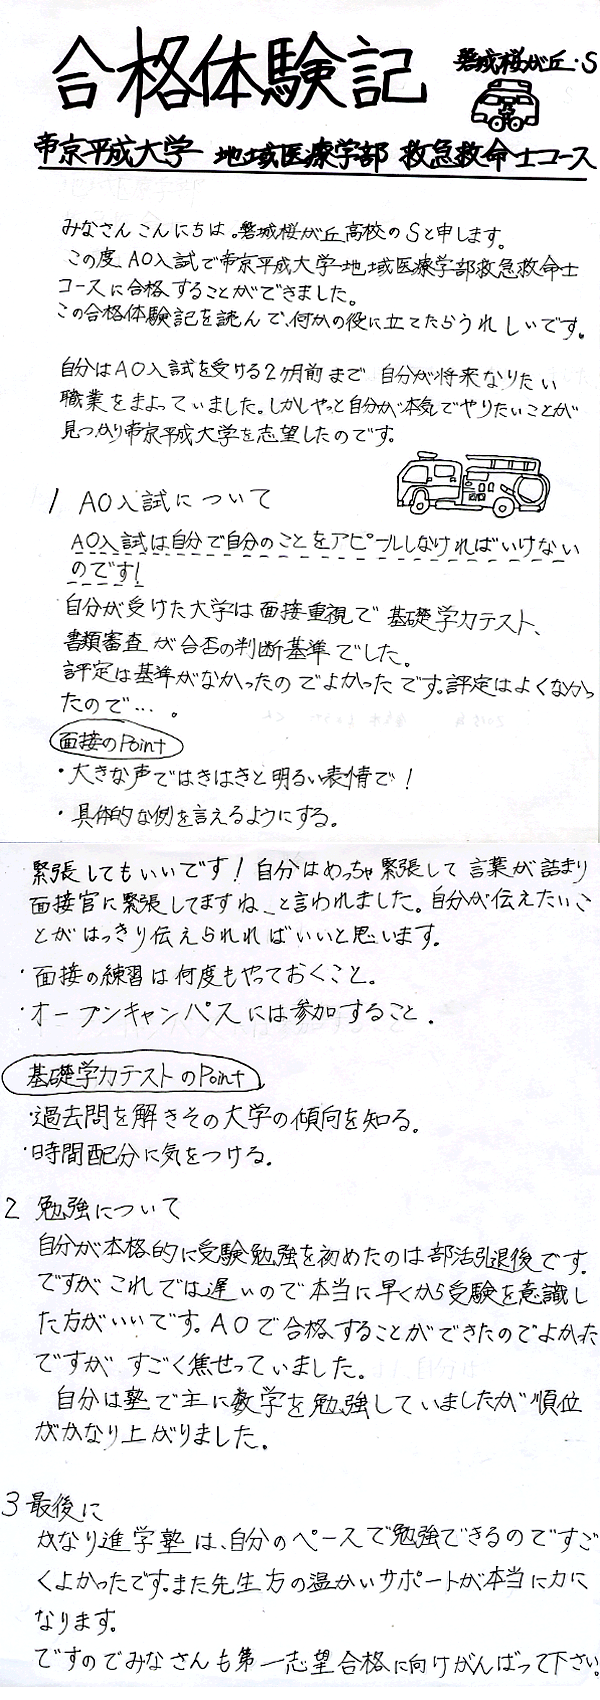 合格体験記
磐城桜が丘・S
帝京平成大学 地域医療学部 救急救命士コース
みなさんこんにちは。磐城桜が丘高校のSと申します。
この度、AO入試で帝京平成大学地域医療学部救急救命士
コースに合格することができました。
この合格体験記を読んで、何かの役に立てたらうれしいです。
自分はAO入試を受ける2ヶ月前まで自分が将来なりたい
職業をまよっていました。しかしやっと自分が本気でやりたいことが
見つかり帝京平成大学を志望したのです。
1 AO入試について
AO入試は自分で自分のことをアピールしなければいけない
のです!
自分が受けた大学は面接重視で基礎学力テスト、
書類審査が合否の判断基準でした。
評定は基準がなかったのでよかったです。評定はよくなかっ
たので…。
面接のPoint
・大きな声ではきはきと明るい表情で!
・具体的な例を言えるようにする。
緊張してもいいです!自分はめっちゃ緊張して言葉が詰まり
面接官に緊張してますね、と言われました。自分が伝えたいこ
とがはっきり伝えられればいいと思います。
・面接の練習は何度もやっておくこと。
・オープンキャンパスには参加すること.
基礎学力テストのPoint
・過去問を解きその大学の傾向を知る。
・時間配分に気をつける。
2 勉強について
自分が本格的に受験勉強を初めたのは部活引退後です。
ですがこれでは遅いので本当に早くから受験を意識し
た方がいいです。AOで合格することができたのでよかった
ですがすごく焦せっていました。
自分は塾で主に数学を勉強していましたが順位
がかなり上がりました。
3 最後に
かなり進学塾は、自分のペースで勉強できるのですご
くよかったです。また先生方の温かいサポートが本当に力に
なります。
ですのでみなさんも第一志望合格に向けがんばって下さい。